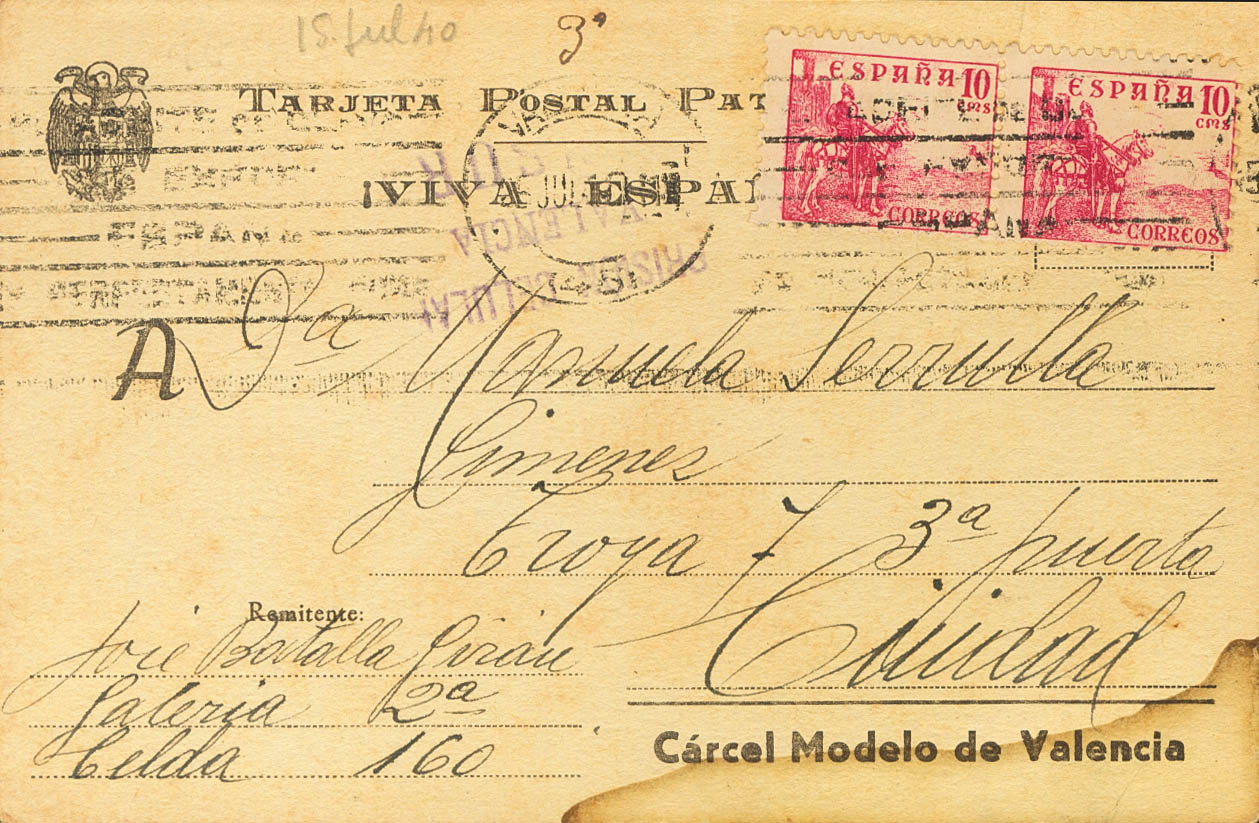 15. Jul 40
3ª
TARJETA POSTAL PAT
¡VIVA ESPAÑ
ESPAÑA 10 cms
CORREOS
ESPAÑA 10 cms
CORREOS
VALENCIA
A Dª Manuela Serrulla
Gimenes
Troya 7 3ª puerta
Ciudad
Remitente:
José Batalla Girán
Galeria 2ª
Celda 160
Cárcel Modelo de Valencia